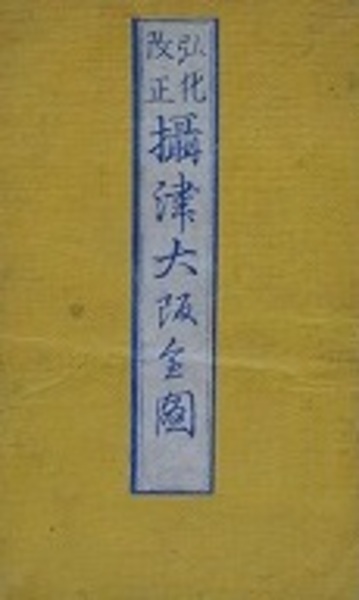 弘化
改正
攝津大阪全圖